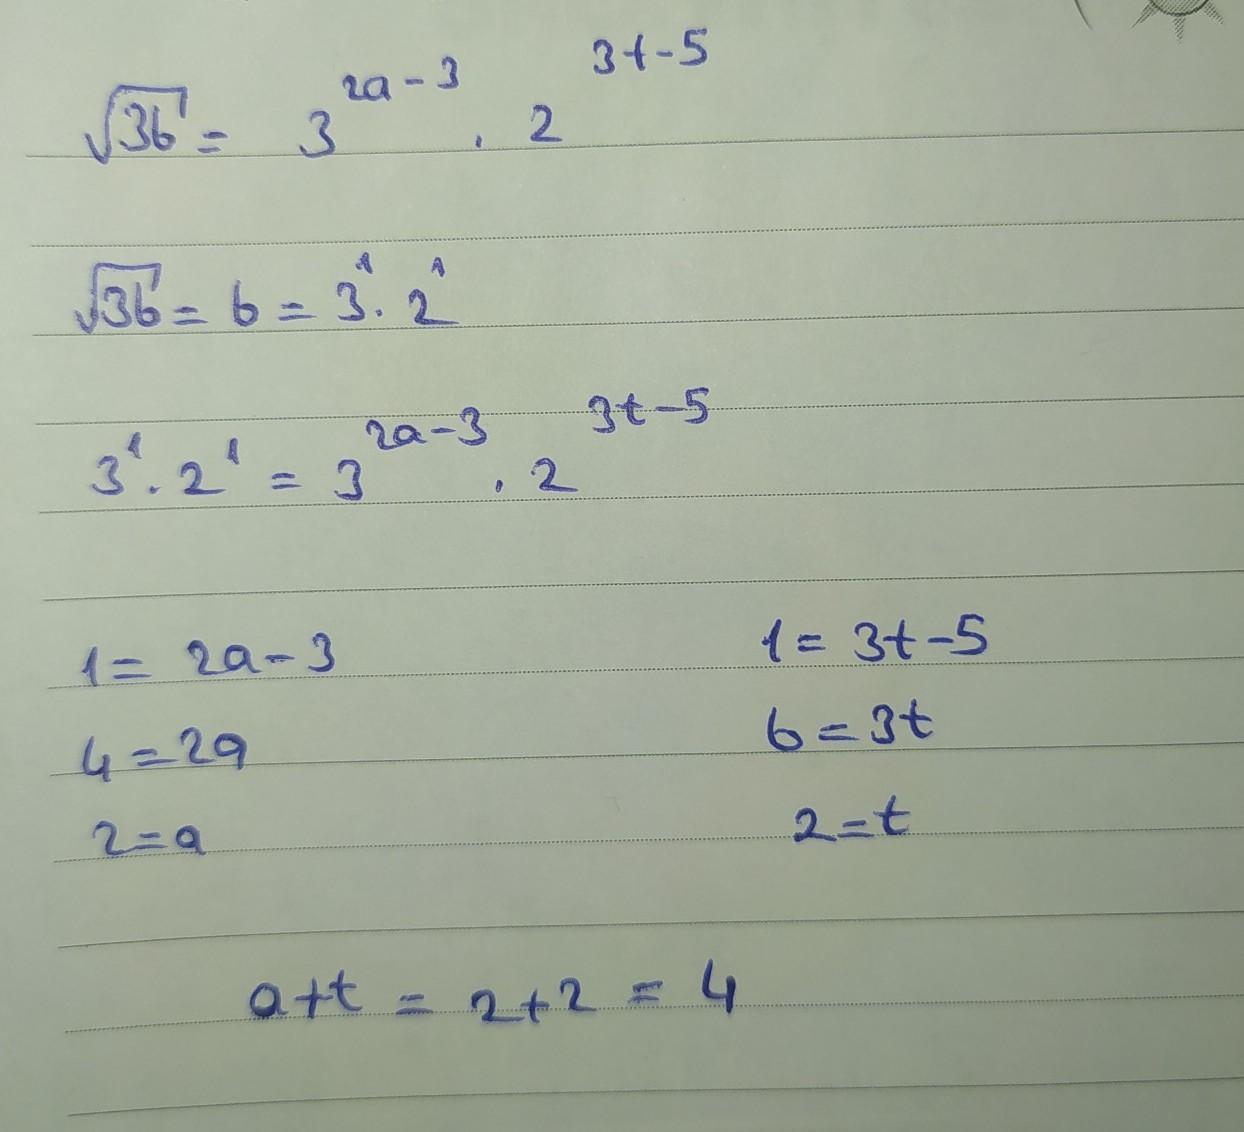 √36 = 3^(2a-3) . 2^(3t-5)
√36 = 6 = 3^1 . 2^1
3^1 . 2^1 = 3^(2a-3) . 2^(3t-5)
1 = 2a-3
4 = 2a
2 = a
1 = 3t-5
6 = 3t
2 = t
a+t = 2+2 = 4